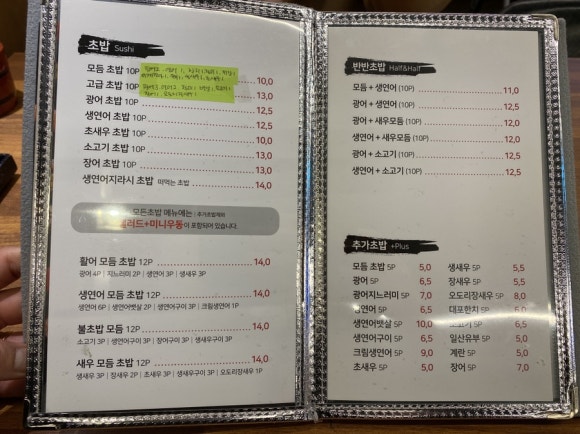 초밥 Sushi
모듬 초밥 10P 10,0
고급 초밥 10P 13,0
광어 초밥 10P 12,5
생연어 초밥 10P 12,5
초새우 초밥 10P 10,0
소고기 초밥 10P 13,0
장어 초밥 10P 13,0
생연어지라시 초밥 떠먹는 초밥 14,0
모든초밥 메뉴에는 : 추가초밥제외
샐러드+미니우동이 포함되어 있습니다
활어 모듬 초밥 12P 14,0
광어 4P | 지느러미 2P | 생연어 3P | 생새우 3P
생연어 모듬 초밥 12P 14,0
생연어 6P | 생연어뱃살 2P | 생연어구이 3P | 크림생연어 1P
불초밥 모듬 12P 14,0
소고기 3P | 생연어구이 3P | 장어구이 3P | 생새우구이 3P
새우 모듬 초밥 12P 14,0
생새우 3P | 장새우 2P | 초새우 3P | 생새우구이 2P | 오도리장새우 2P
반반초밥 Half&Half
모듬 + 생연어 (10P) 11,0
광어 + 생연어 (10P) 12,5
광어 + 새우모듬 (10P) 12,5
생연어 + 새우모듬 (10P) 12,5
광어 + 소고기 (10P) 12,5
생연어 + 소고기 (10P) 12,5
추가초밥 +Plus
모듬 초밥 5P 5,0
광어 5P 6,5
광어지느러미 5P 7,0
생연어 5P 6,5
생연어뱃살 5P 10,0
생연어구이 5P 6,5
크림생연어 5P 9,0
초새우 5P 5,0
생새우 5P 5,5
장새우 5P 5,5
오도리장새우 5P 8,0
대포한치 5P 6,5
소고기 5P 6,5
일산유부 5P 5,0
계란 5P 5,0
장어 5P 7,0